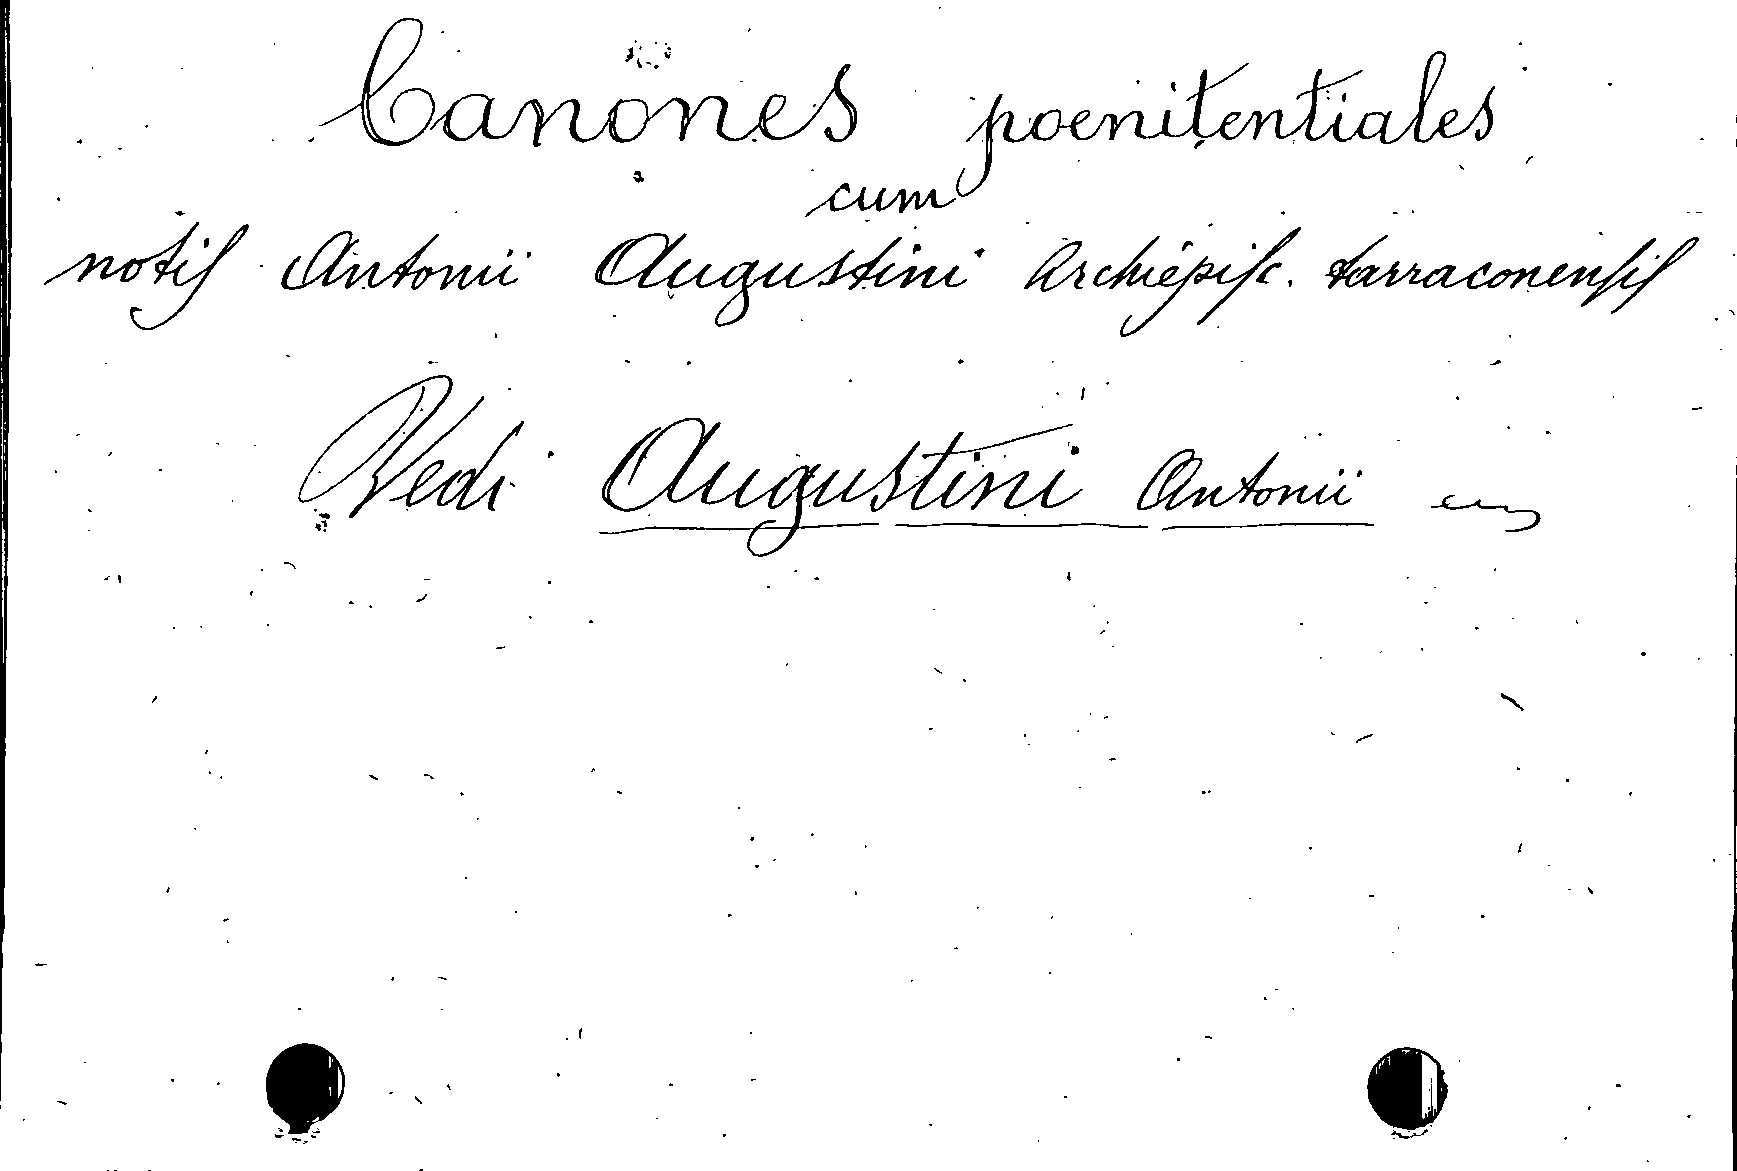 Canones poenitentiales
cum
notiſ Antonii Augustini Archiepiſc. tarraconenſiſ
Vedi Augustini Antonii